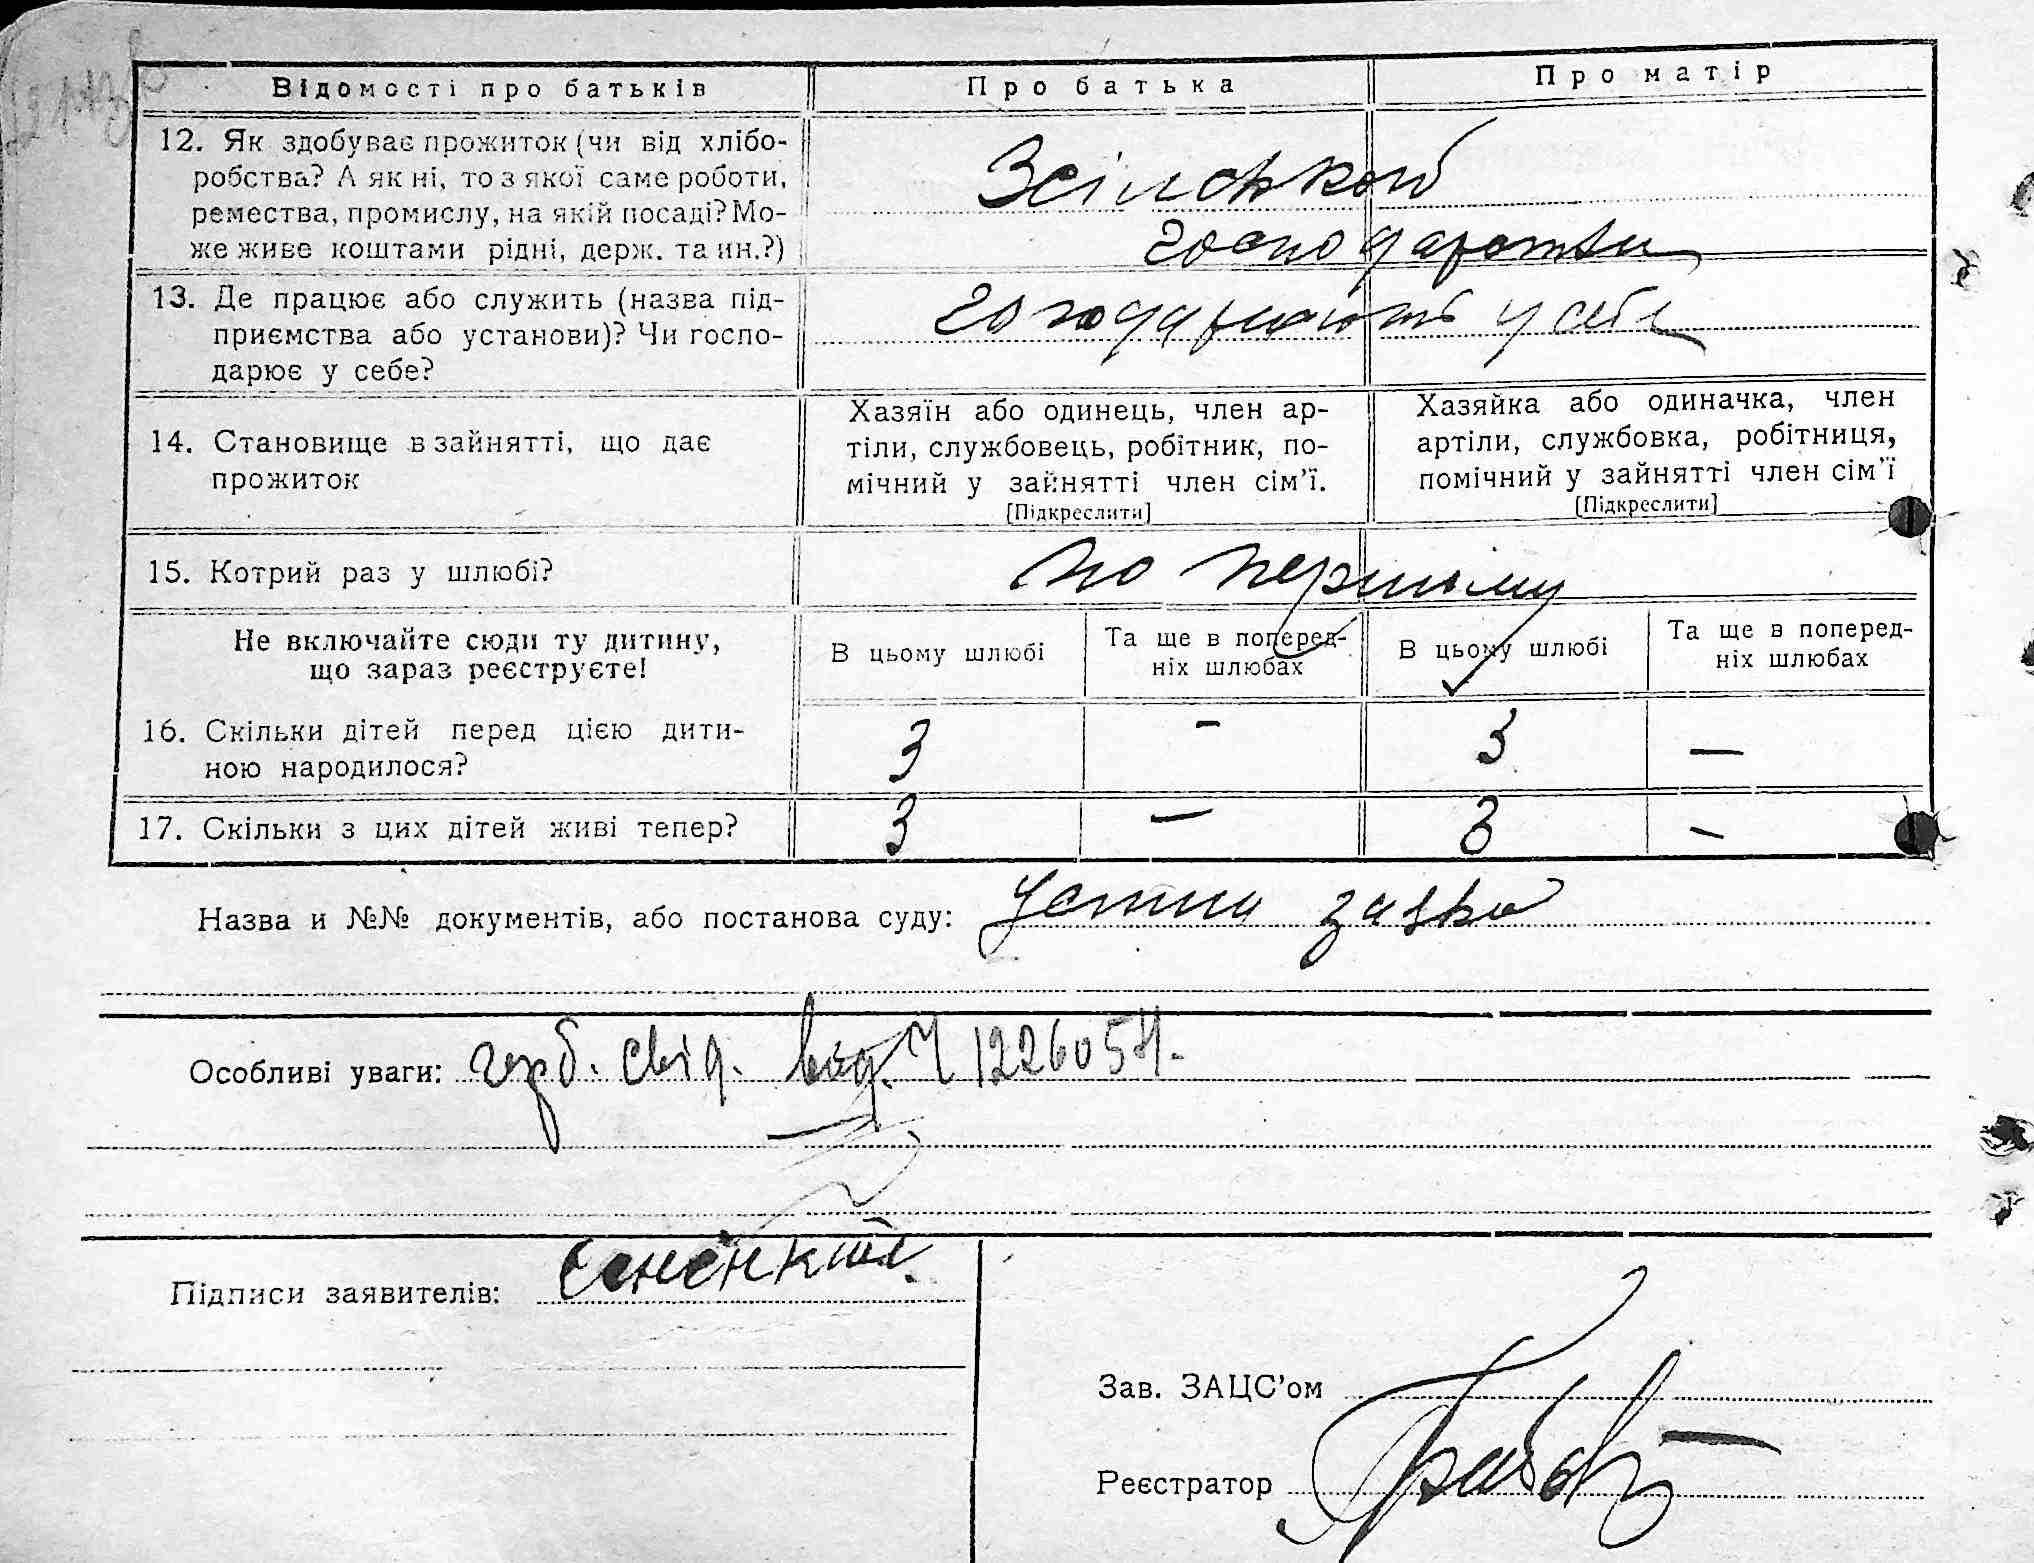 Відомості про батьків Про батька Про матір
12. Як здобуває прожиток (чи від хлібо-
робства? А як ні, то з якої саме роботи,
ремества, промислу, на якій посаді? Мо-
же живе коштами рідні, держ. та ин.?)
Зсільської
господарства
13. Де працює або служить (назва під-
приємства або установи)? Чи госпо-
дарює у себе?
у себе
14. Становище в зайнятті, що дає
прожиток
Хазяїн або одинець, член ар-
тіли, службовець, робітник, по-
мічний у зайнятті член сім'ї.
[Підкреслити]
Хазяйка або одиначка, член
артіли, службовка, робітниця,
помічний у зайнятті член сім'ї
[Підкреслити]
15. Котрий раз у шлюбі? по першому
Не включайте сюди ту дитину,
що зараз реєструєте!
В цьому шлюбі
Та ще в поперед-
ніх шлюбах
В цьому шлюбі
Та ще в поперед-
ніх шлюбах
16. Скільки дітей перед цією дити-
ною народилося?
3 - 3 —
17. Скільки з цих дітей живі тепер? 3 — 3 -
Назва и №№ документів, або постанова суду: Устна заява
Особливі уваги: герб. свід. вид. Ч 1226054.
Підписи заявителів:
Зав. ЗАЦС'ом
Реєстратор